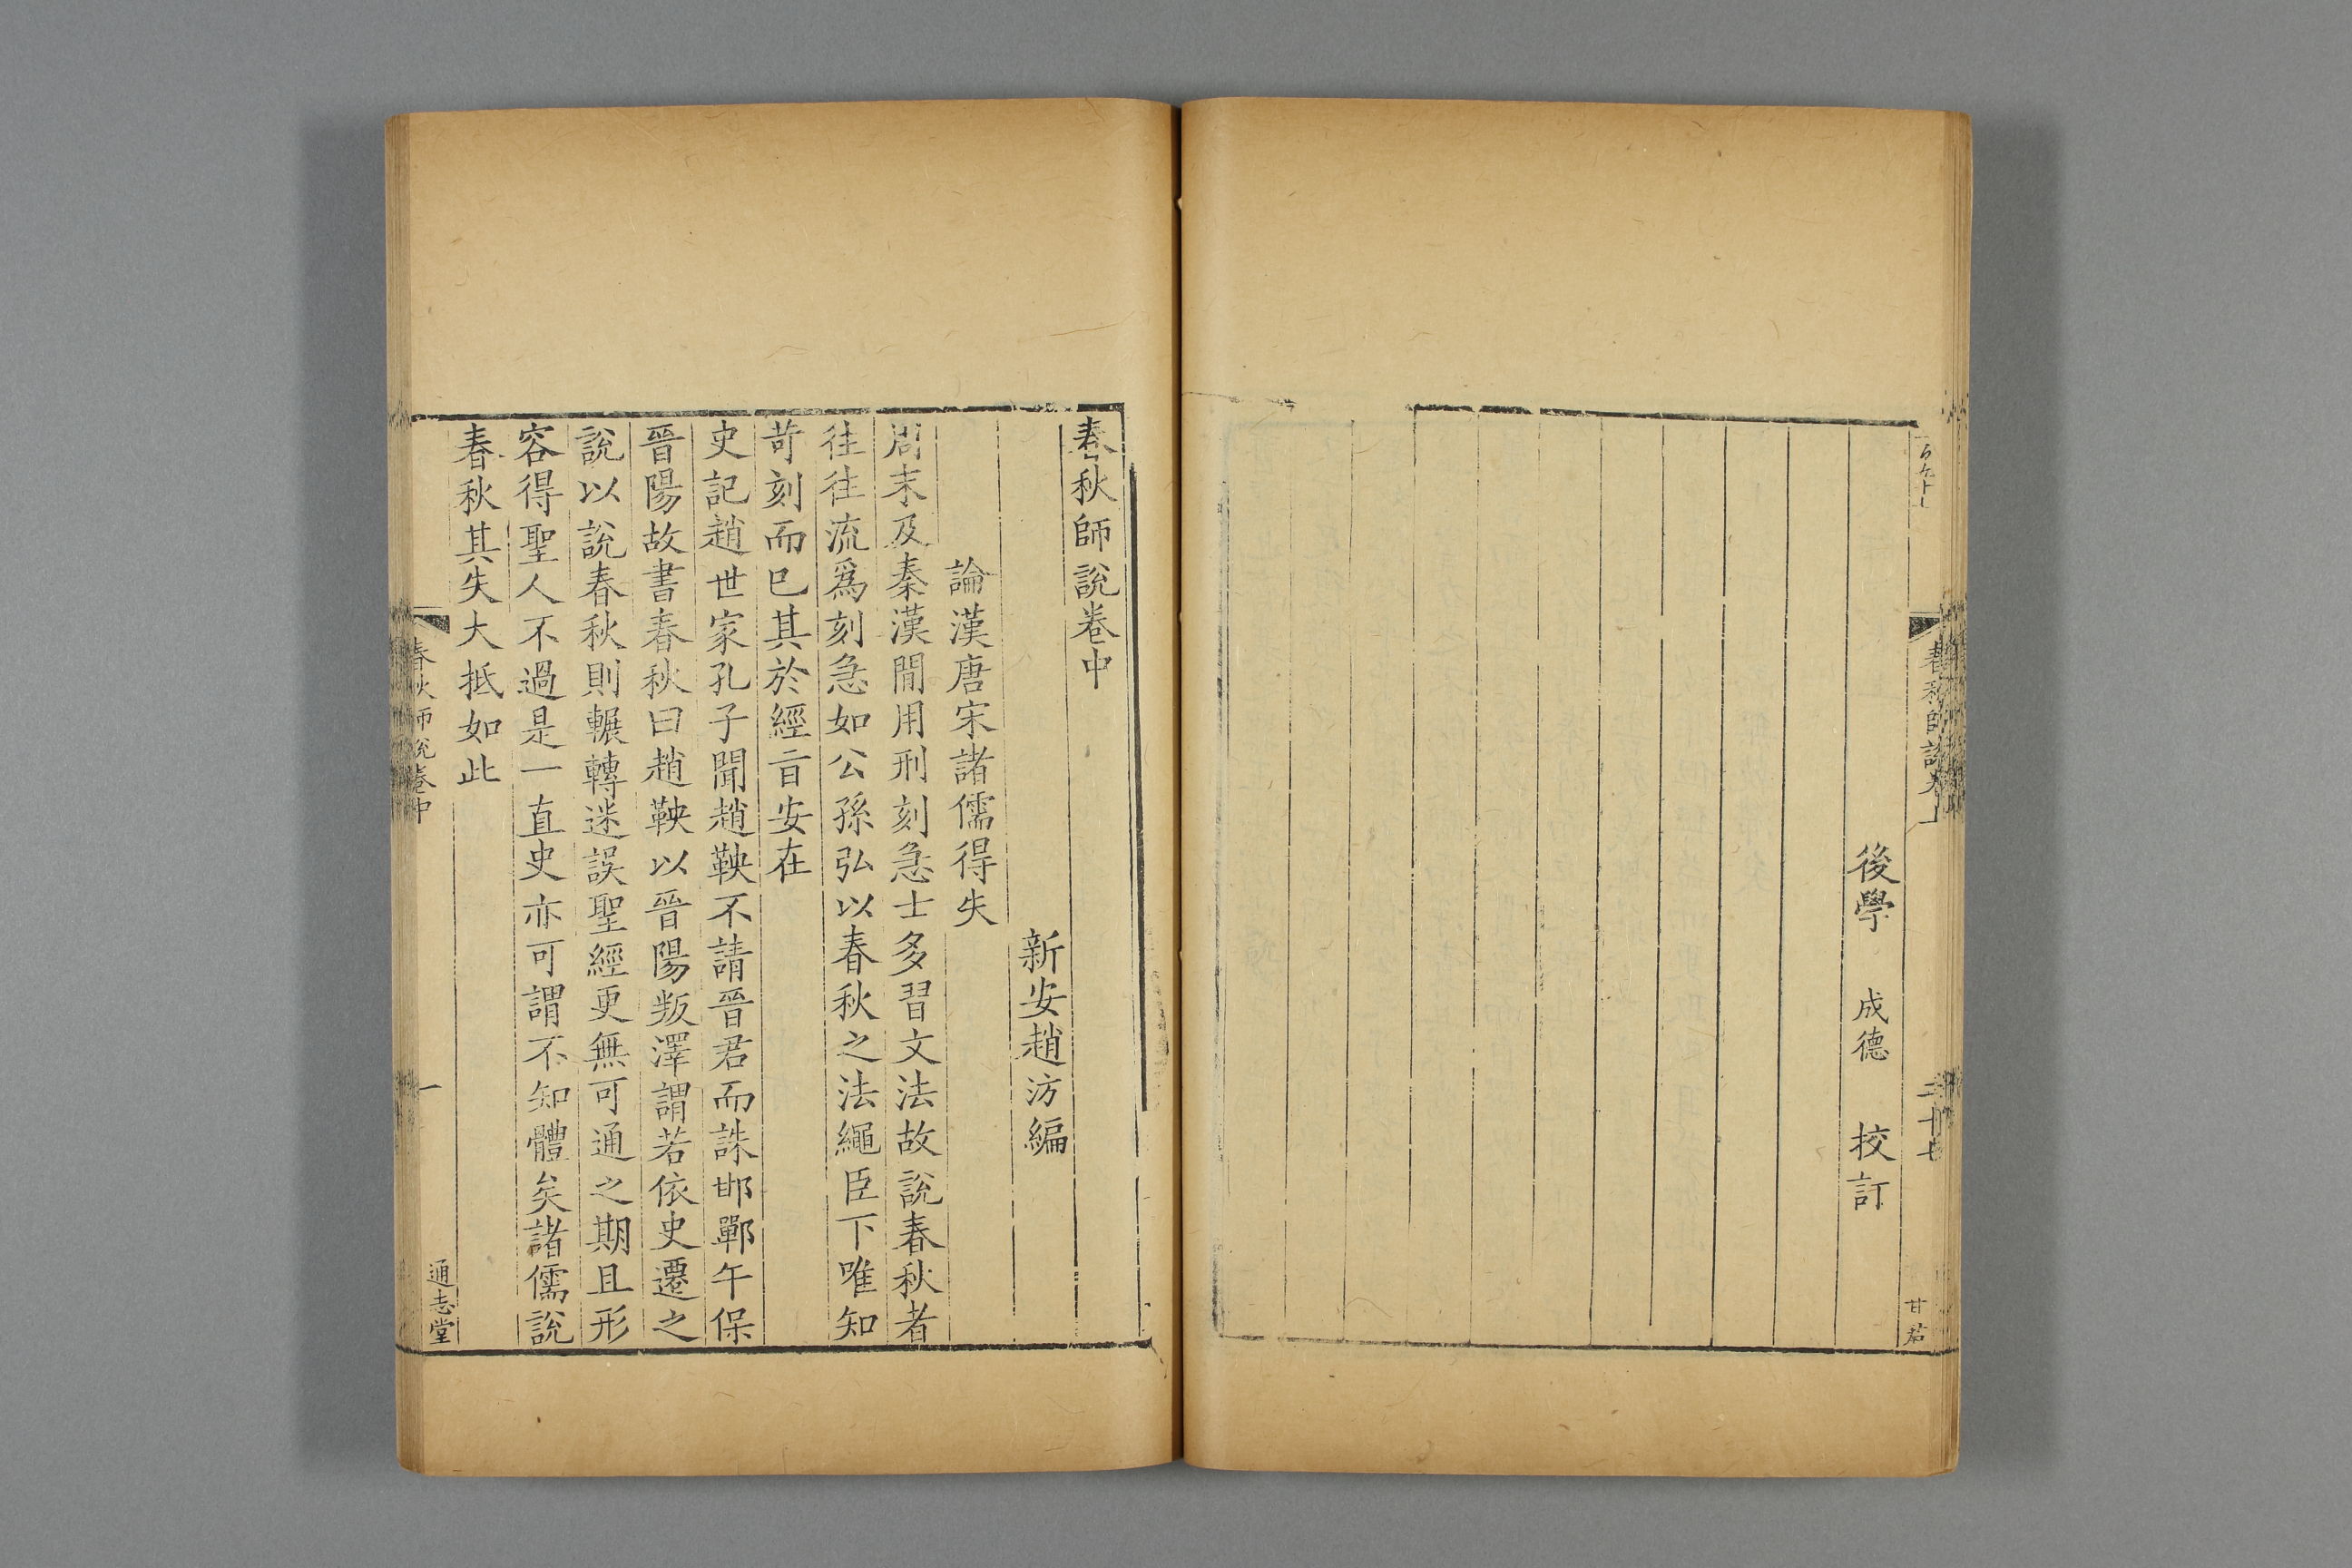 春秋師說卷上
二十七
甘茗
後學 成德 校訂
春秋師說卷中
新安趙汸編
論漢唐宋諸儒得失
周末及秦漢閒用刑刻急士多習文法故說春秋者
往往流爲刻急如公孫弘以春秋之法繩臣下唯知
苛刻而已其於經旨安在
史記趙世家孔子聞趙鞅不請晉君而誅邯鄲午保
晉陽故書春秋曰趙鞅以晉陽叛澤謂若依史遷之
說以說春秋則輾轉迷誤聖經更無可通之期且形
容得聖人不過是一直史亦可謂不知體矣諸儒說
春秋其失大抵如此
春秋師說卷中
一
通志堂